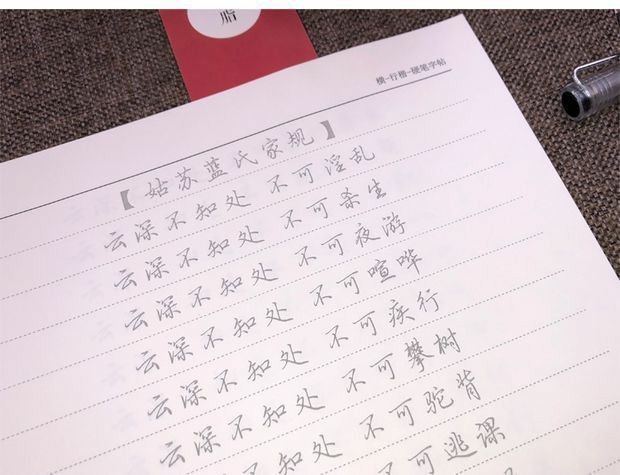 脂
横-行楷-硬笔字帖
【姑苏蓝氏家规】
云深不知处 不可淫乱
云深不知处 不可杀生
云深不知处 不可夜游
云深不知处 不可喧哗
云深不知处 不可疾行
云深不知处 不可攀树
云深不知处 不可驼背
不可逃课